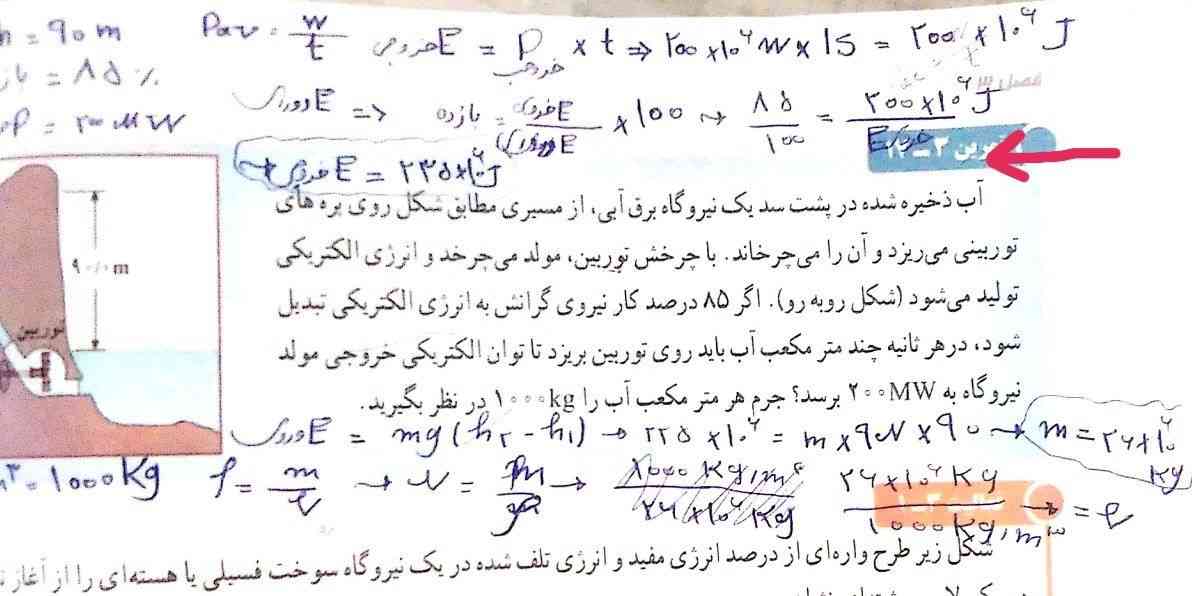 h = ۹۰ m
Pav = w/t
E خروجی = P خروجی × t ⇒ ۲۰۰ × ۱۰^۶ W × 1S = ۲۰۰ × ۱۰^۶ J
= ۸۵ ٪
P = ۲۰۰ MW
فصل ۳
E ورودی ⇐ بازده = E خروجی / E ورودی × ۱۰۰ → ۸۵/۱۰۰ = ۲۰۰ × ۱۰^۶ J / E
E = ۲۳۵ × ۱۰^۶ J
تمرین ۳ــ۱۲
آب ذخیره شده در پشت سد یک نیروگاه برق آبی، از مسیری مطابق شکل روی پره های
توربینی می‌ریزد و آن را می‌چرخاند. با چرخش توربین، مولد می‌چرخد و انرژی الکتریکی
تولید می‌شود (شکل روبه رو). اگر ۸۵ درصد کار نیروی گرانش به انرژی الکتریکی تبدیل
شود، درهر ثانیه چند متر مکعب آب باید روی توربین بریزد تا توان الکتریکی خروجی مولد
نیروگاه به ۲۰۰MW برسد؟ جرم هر متر مکعب آب را ۱۰۰۰kg در نظر بگیرید.
۹۰/۰ m
توربین
E ورودی = mg (h۲ - h۱) → ۲۳۵ × ۱۰^۶ = m × ۹٫۸ × ۹۰ → m = ۲۶ × ۱۰^۴ Kg
= 1000 Kg
ρ = m/v → v = m/ρ → ۲۶ × ۱۰^۴ Kg / 1000 Kg/m^۳ = v
شکل زیر طرح واره‌ای از درصد انرژی مفید و انرژی تلف شده در یک نیروگاه سوخت فسیلی یا هسته‌ای را از آغاز